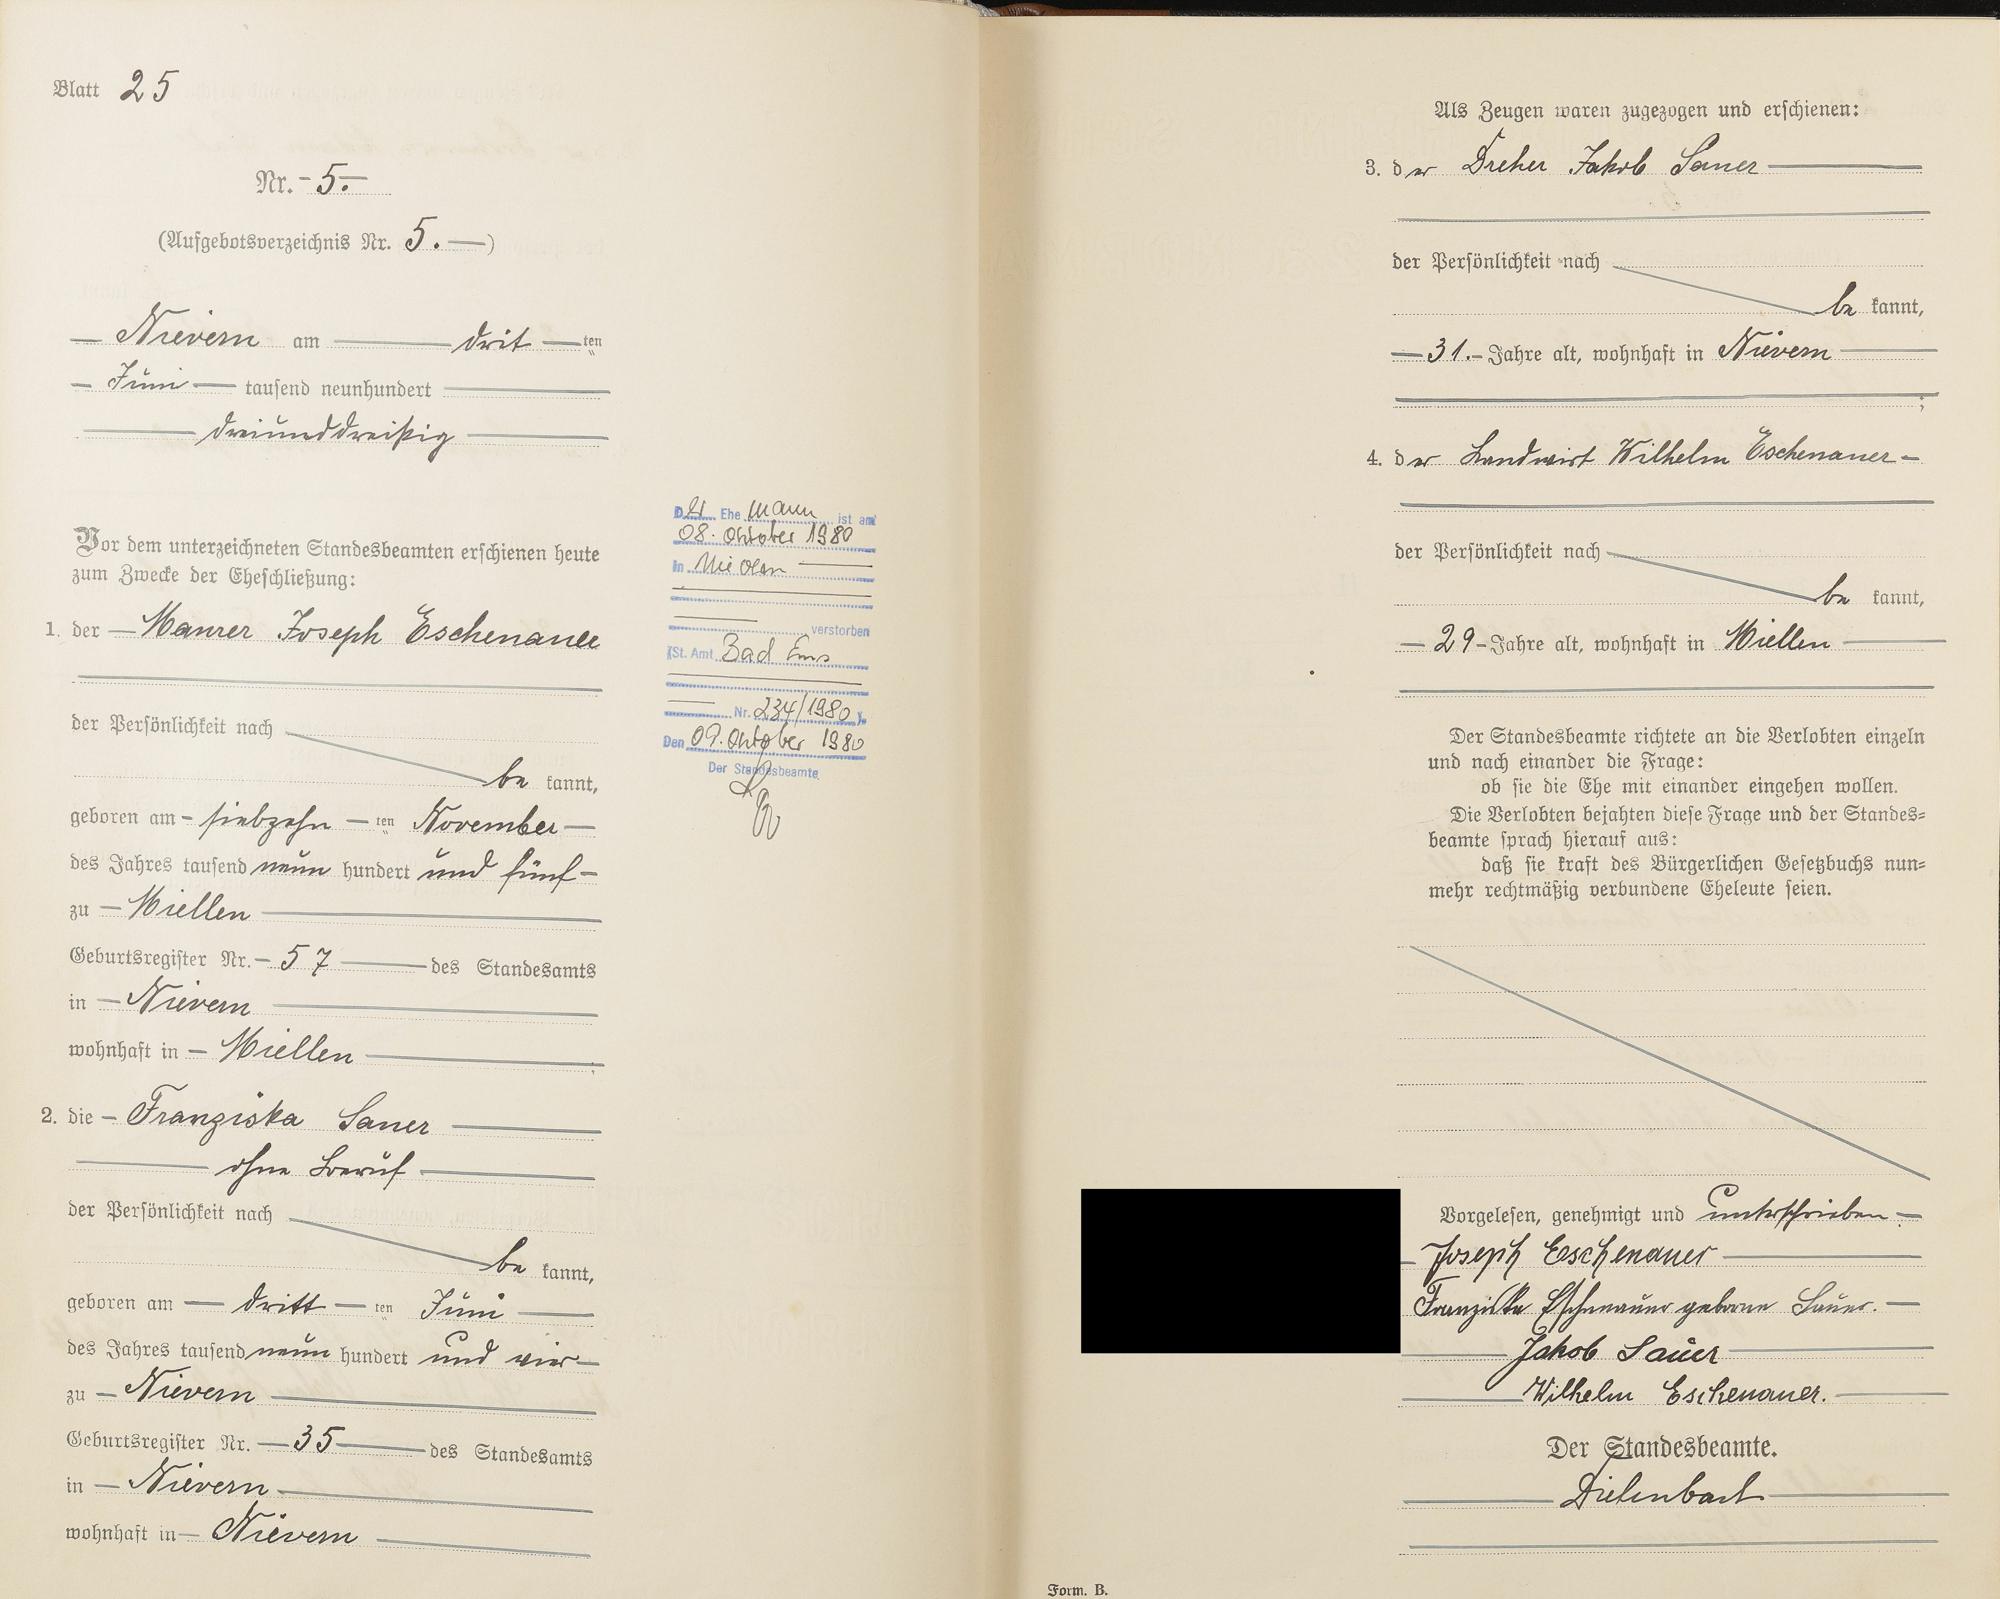 Blatt 25
Nr. 5.
(Aufgebotsverzeichnis Nr. 5.)
Nievern am drit ten
Juni tausend neunhundert
dreiunddreißig
Vor dem unterzeichneten Standesbeamten erschienen heute
zum Zwecke der Eheschließung:
1. der Maurer Joseph Eschenauer
der Persönlichkeit nach
be kannt,
geboren am siebzehn ten November
des Jahres tausend neun hundert und fünf
zu Miellen
Geburtsregister Nr. 57 des Standesamts
in Nievern
wohnhaft in Miellen
2. die Franziska Sauer
ohne Beruf
der Persönlichkeit nach
be kannt,
geboren am dritt ten Juni
des Jahres tausend neun hundert und vier
zu Nievern
Geburtsregister Nr. 35 des Standesamts
in Nievern
wohnhaft in Nievern
Der Ehe mann ist am
08. Oktober 1980
in Miellen
verstorben
(St. Amt Bad Ems
Nr. 234/1980).
Den 09. Oktober 1980
Der Standesbeamte
Als Zeugen waren zugezogen und erschienen:
3. der Dreher Jakob Sauer
der Persönlichkeit nach
be kannt,
31. Jahre alt, wohnhaft in Nievern
;
4. der Landwirt Wilhelm Eschenauer
der Persönlichkeit nach
be kannt,
29 Jahre alt, wohnhaft in Miellen
Der Standesbeamte richtete an die Verlobten einzeln
und nach einander die Frage:
ob sie die Ehe mit einander eingehen wollen.
Die Verlobten bejahten diese Frage und der Standes=
beamte sprach hierauf aus:
daß sie kraft des Bürgerlichen Gesetzbuchs nun=
mehr rechtmäßig verbundene Eheleute seien.
Vorgelesen, genehmigt und unterschrieben
Joseph Eschenauer
Franziska Eschenauer geborene Sauer.
Jakob Sauer
Wilhelm Eschenauer.
Der Standesbeamte.
Form. B.